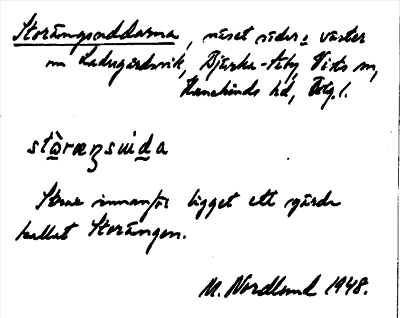 Storängsuddarna, näset söder o väster
om Ladugårdsvik, Bjärka-Säby, Vists sn,
Hanekinds hd, Östg.l.
stɷ̀ræŋsuida
Strax innanför ligget ett gärde
kallat Storängen.
M. Nordlund 1948.